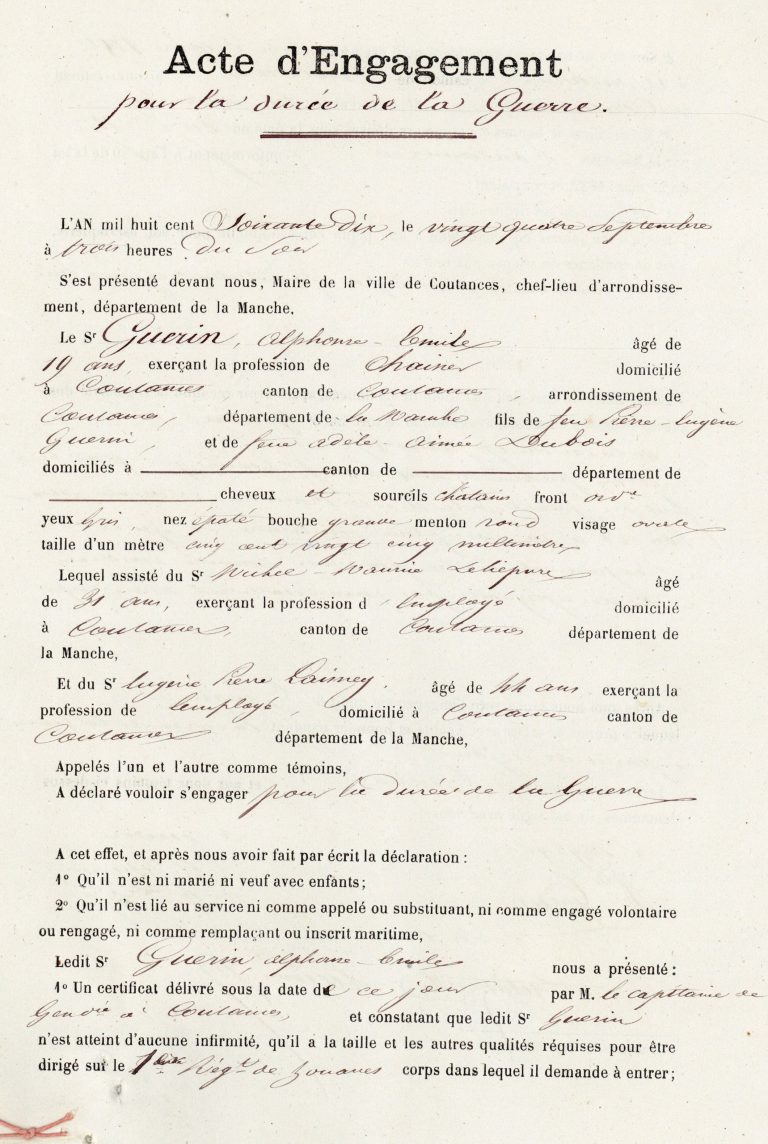 Acte d'Engagement
pour la durée de la Guerre.
L'AN mil huit cent Soixante dix, le vingt quatre Septembre
à trois heures du Soir
S'est présenté devant nous, Maire de la ville de Coutances, chef-lieu d'arrondisse-
ment, département de la Manche,
Le Sr Guerin, alphonse-Emile âgé de
19 ans, exerçant la profession de domicilié
à Coutances canton de Coutances, arrondissement de
Coutances, département de la Manche fils de feu Pierre-Eugène
Guerin, et de feue adèle-aimée Dubois
domiciliés à canton de département de
cheveux et sourcils chatains front ordre
yeux Gris, nez épaté bouche grande menton rond visage ovale
taille d'un mètre cinq cent vingt cinq millimètres
Lequel assisté du Sr âgé
de 31 ans, exerçant la profession d'employé domicilié
à Coutances, canton de Coutances département de
la Manche,
Et du Sr Eugène Pierre Laisney, âgé de 44 ans exerçant la
profession de employé, domicilié à Coutances canton de
Coutances département de la Manche,
Appelés l'un et l'autre comme témoins,
A déclaré vouloir s'engager pour la durée de la Guerre
A cet effet, et après nous avoir fait par écrit la déclaration :
1º Qu'il n'est ni marié ni veuf avec enfants ;
2º Qu'il n'est lié au service ni comme appelé ou substituant, ni comme engagé volontaire
ou rengagé, ni comme remplaçant ou inscrit maritime,
Ledit Sr Guerin, alphonse-Emile nous a présenté :
1º Un certificat délivré sous la date de ce jour par M. le capitaine de
Gendie à Coutances, et constatant que ledit Sr Guerin
n'est atteint d'aucune infirmité, qu'il a la taille et les autres qualités réquises pour être
dirigé sur le 1er Régt de Zouaves corps dans lequel il demande à entrer ;